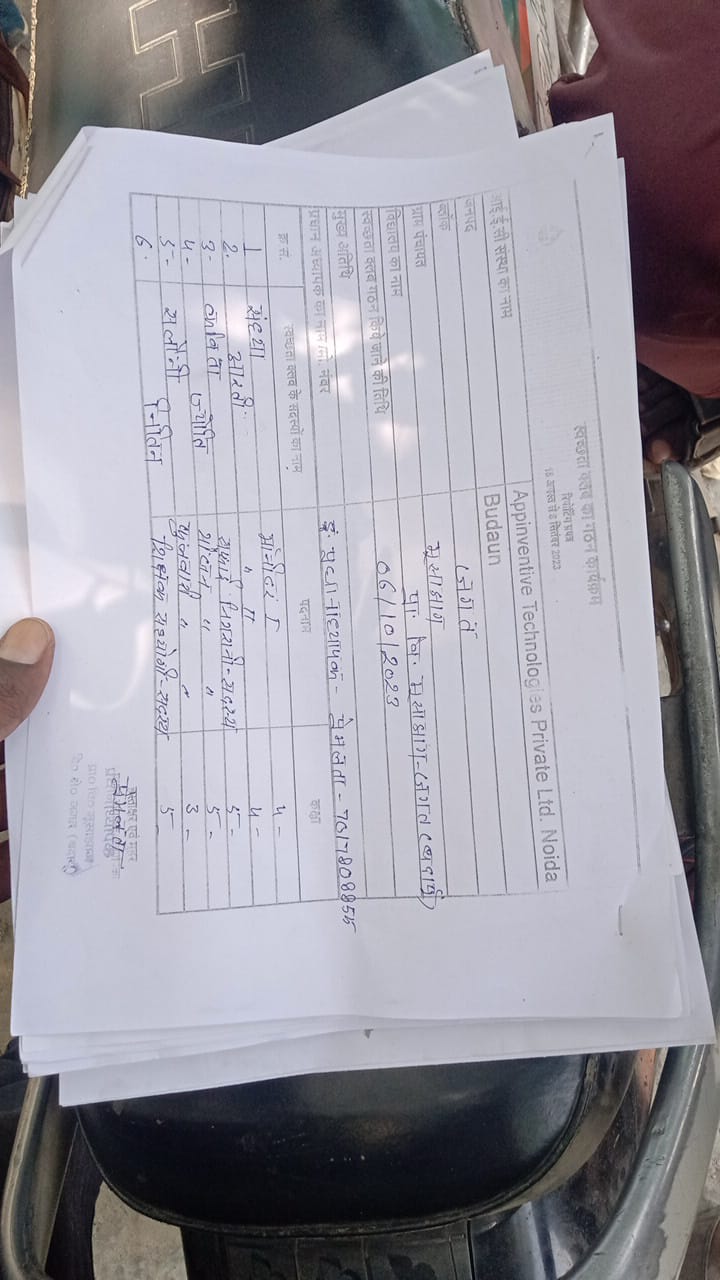 स्वच्छता क्लब का गठन कार्यक्रम
रिपोर्टिंग प्रपत्र
18 अगस्त से 8 सितंबर 2023
आई ई सी संस्था का नाम Appinventive Technologies Private Ltd. Noida
जनपद Budaun
ब्लॉक जगत
ग्राम पंचायत मूसाझाग
विद्यालय का नाम प्रा. वि. मूसाझाग-जगत (बदायूँ)
स्वच्छता क्लब गठन किये जाने की तिथि 06/10/2023
मुख्य अतिथि
प्रधान अध्यापक का नाम/मो. नंबर इं. प्रधानाध्यापक - प्रेमलता - 7617808855
क्र.सं. स्वच्छता क्लब के सदस्यों का नाम पदनाम कक्षा
1 संध्या मॉनीटर I 4 -
2. आरती " II 4 -
3. सफाई निगरानी-सदस्य 5 -
4 - ज्योति शौचालय " " 5 -
5 - सलोनी फुलवारी " " 3 -
6. शिक्षक सहयोगी-सदस्य 5
हस्ताक्षर एवं मोहर
प्रेमलता